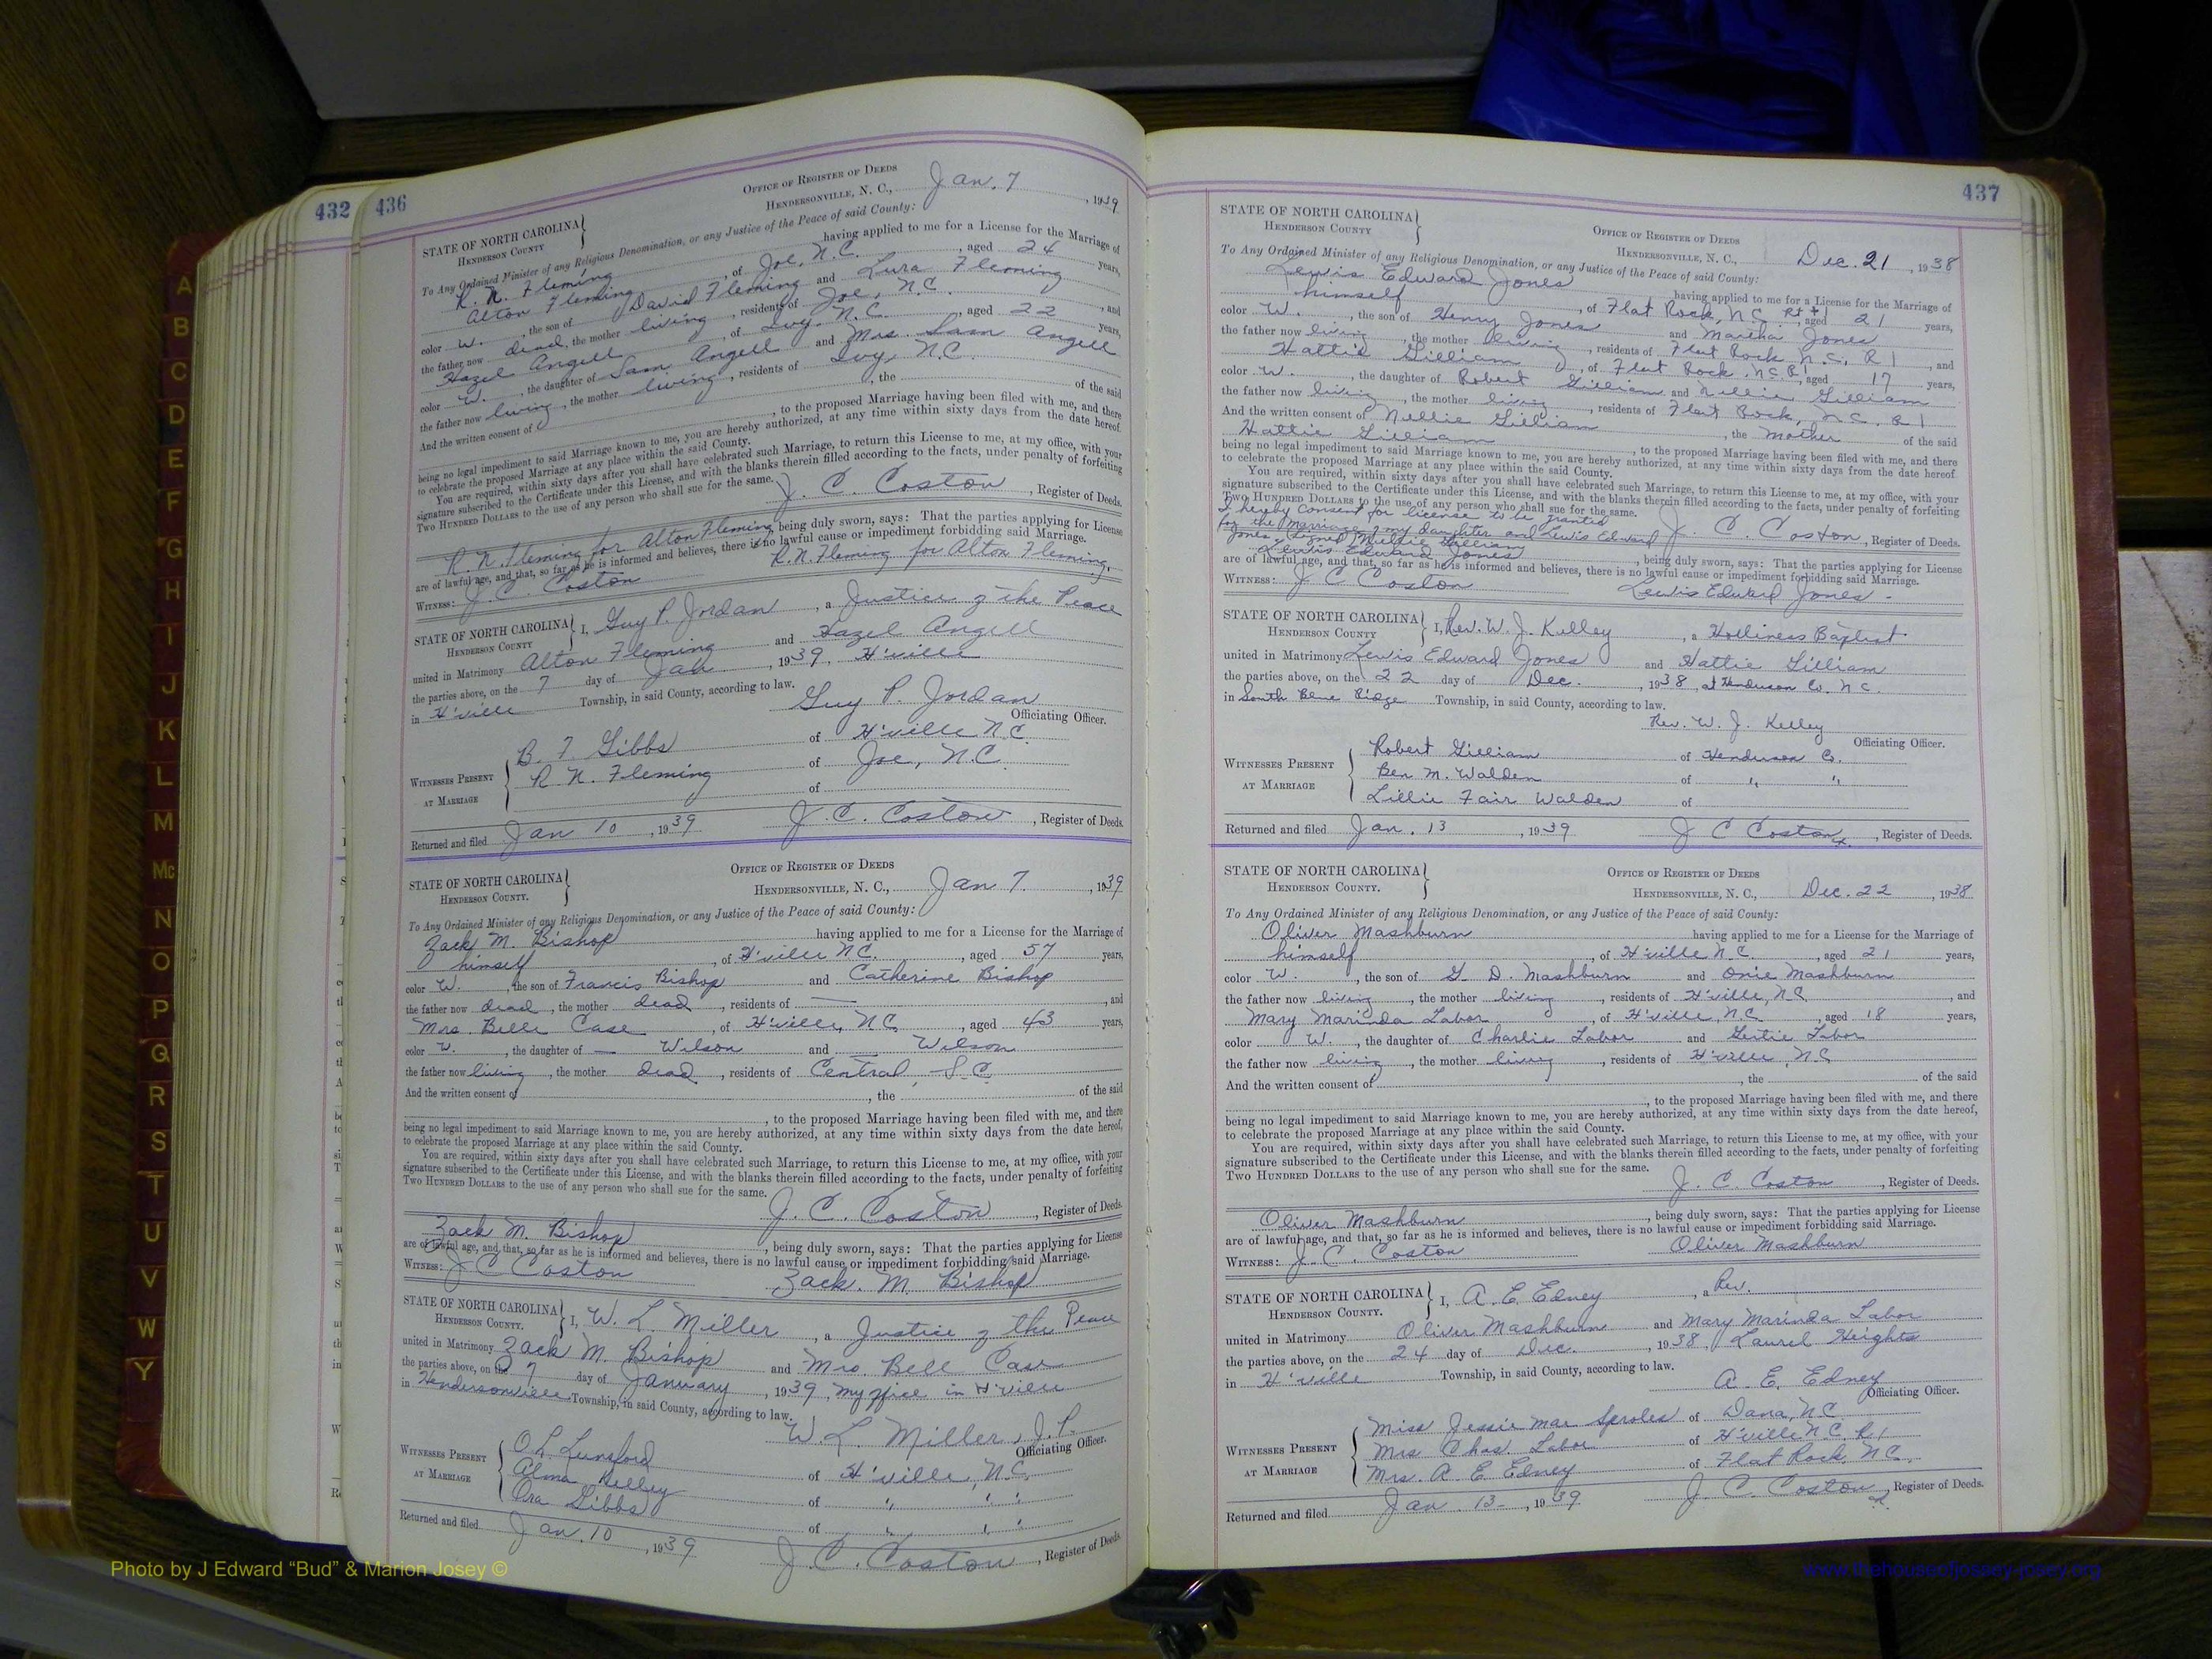 432
436
OFFICE OF REGISTER OF DEEDS
HENDERSONVILLE, N. C., Jan. 7, 1939
STATE OF NORTH CAROLINA
HENDERSON COUNTY
To Any Ordained Minister of any Religious Denomination, or any Justice of the Peace of said County:
R. N. Fleming having applied to me for a License for the Marriage of
Alton Fleming, of Joe, N.C., aged 24 years,
color W., the son of David Fleming and Lura Fleming
the father now dead, the mother living, residents of Joe, N.C., and
Hazel Angell, of Ivy, N.C., aged 22 years,
color W., the daughter of Sam Angell and Mrs. Sam Angell
the father now living, the mother living, residents of Ivy, N.C.
And the written consent of , the of the said
, to the proposed Marriage having been filed with me, and there
being no legal impediment to said Marriage known to me, you are hereby authorized, at any time within sixty days from the date hereof,
to celebrate the proposed Marriage at any place within the said County.
You are required, within sixty days after you shall have celebrated such Marriage, to return this License to me, at my office, with your
signature subscribed to the Certificate under this License, and with the blanks therein filled according to the facts, under penalty of forfeiting
TWO HUNDRED DOLLARS to the use of any person who shall sue for the same.
J. C. Coston, Register of Deeds.
R. N. Fleming for Alton Fleming, being duly sworn, says: That the parties applying for License
are of lawful age, and that, so far as he is informed and believes, there is no lawful cause or impediment forbidding said Marriage.
WITNESS: J. C. Coston R. N. Fleming for Alton Fleming.
STATE OF NORTH CAROLINA
HENDERSON COUNTY
I, Guy P. Jordan, a Justice of the Peace
united in Matrimony Alton Fleming and Hazel Angell
the parties above, on the 7 day of Jan, 1939, H'ville
in H'ville Township, in said County, according to law.
Guy P. Jordan
Officiating Officer.
WITNESSES PRESENT AT MARRIAGE
B. F. Gibbs of H'ville N.C.
R. N. Fleming of Joe, N.C.
of
Returned and filed Jan 10, 1939 J. C. Coston, Register of Deeds.
OFFICE OF REGISTER OF DEEDS
STATE OF NORTH CAROLINA
HENDERSON COUNTY.
HENDERSONVILLE, N. C., Jan 7., 1939
To Any Ordained Minister of any Religious Denomination, or any Justice of the Peace of said County:
Zack M. Bishop having applied to me for a License for the Marriage of
himself, of H'ville NC., aged 57 years,
color W., the son of Francis Bishop and Catherine Bishop
the father now dead, the mother dead, residents of — , and
Mrs. Belle Case, of H'ville, NC, aged 43 years,
color W., the daughter of — Wilson and — Wilson
the father now living, the mother dead, residents of Central, S.C.
And the written consent of , the of the said
, to the proposed Marriage having been filed with me, and there
being no legal impediment to said Marriage known to me, you are hereby authorized, at any time within sixty days from the date hereof,
to celebrate the proposed Marriage at any place within the said County.
You are required, within sixty days after you shall have celebrated such Marriage, to return this License to me, at my office, with your
signature subscribed to the Certificate under this License, and with the blanks therein filled according to the facts, under penalty of forfeiting
TWO HUNDRED DOLLARS to the use of any person who shall sue for the same.
J. C. Coston, Register of Deeds.
Zack M. Bishop, being duly sworn, says: That the parties applying for License
are of lawful age, and that, so far as he is informed and believes, there is no lawful cause or impediment forbidding said Marriage.
WITNESS: J C Coston Zack. M. Bishop
STATE OF NORTH CAROLINA
HENDERSON COUNTY.
I, W. L. Miller, a Justice of the Peace
united in Matrimony Zack M. Bishop and Mrs Bell Case
the parties above, on the 7 day of January, 1939, my office in H'ville
in Hendersonville Township, in said County, according to law.
W. L. Miller, J. P.
Officiating Officer.
WITNESSES PRESENT AT MARRIAGE
O L Lunsford of H'ville, N.C.
Alma Kelley of " " "
Ora Gibbs of " " "
Returned and filed Jan. 10, 1939 J. C. Coston, Register of Deeds.
437
STATE OF NORTH CAROLINA
HENDERSON COUNTY
OFFICE OF REGISTER OF DEEDS
HENDERSONVILLE, N. C., Dec. 21, 1938
To Any Ordained Minister of any Religious Denomination, or any Justice of the Peace of said County:
Lewis Edward Jones having applied to me for a License for the Marriage of
himself, of Flat Rock, N.C Rt #1, aged 21 years,
color W., the son of Henry Jones and Martha Jones
the father now living, the mother living, residents of Flat Rock N.C., R 1, and
Hattie Gilliam, of Flat Rock N.C. R1, aged 17 years,
color W., the daughter of Robert Gilliam and Nellie Gilliam
the father now living, the mother living, residents of Flat Rock, N.C. R 1
And the written consent of Nellie Gilliam, the Mother of the said
Hattie Gilliam, to the proposed Marriage having been filed with me, and there
being no legal impediment to said Marriage known to me, you are hereby authorized, at any time within sixty days from the date hereof
to celebrate the proposed Marriage at any place within the said County.
You are required, within sixty days after you shall have celebrated such Marriage, to return this License to me, at my office, with your
signature subscribed to the Certificate under this License, and with the blanks therein filled according to the facts, under penalty of forfeiting
TWO HUNDRED DOLLARS to the use of any person who shall sue for the same.
I hereby consent for license to be granted
for the marriage of my daughter and Lewis Edward
Jones. Signed Nellie Gilliam
J. C. Coston, Register of Deeds.
Lewis Edward Jones, being duly sworn, says: That the parties applying for License
are of lawful age, and that, so far as he is informed and believes, there is no lawful cause or impediment forbidding said Marriage.
WITNESS: J C Coston Lewis Edward Jones -
STATE OF NORTH CAROLINA
HENDERSON COUNTY
I, Rev. W. J. Kelley, a Holliness Baptist
united in Matrimony Lewis Edward Jones and Hattie Gilliam
the parties above, on the 22 day of Dec., 1938, at Henderson Co. N.C.
in South Blue Ridge Township, in said County, according to law.
Rev. W. J. Kelley
Officiating Officer.
WITNESSES PRESENT AT MARRIAGE
Robert Gilliam of Henderson Co.
Ben M. Walden of " "
Lillie Fair Walden of
Returned and filed Jan. 13, 1939 J C Coston, Register of Deeds.
STATE OF NORTH CAROLINA
HENDERSON COUNTY.
OFFICE OF REGISTER OF DEEDS
HENDERSONVILLE, N. C., Dec. 22, 1938
To Any Ordained Minister of any Religious Denomination, or any Justice of the Peace of said County:
Oliver Mashburn having applied to me for a License for the Marriage of
himself, of H'ville N.C., aged 21 years,
color W., the son of G. D. Mashburn and Onie Mashburn
the father now living, the mother living, residents of H'ville, N.C, and
Mary Marinda Labor, of H'ville, N.C, aged 18 years,
color W., the daughter of Charlie Labor and Gertie Labor
the father now living, the mother living, residents of H'ville, N.C
And the written consent of , the of the said
, to the proposed Marriage having been filed with me, and there
being no legal impediment to said Marriage known to me, you are hereby authorized, at any time within sixty days from the date hereof,
to celebrate the proposed Marriage at any place within the said County.
You are required, within sixty days after you shall have celebrated such Marriage, to return this License to me, at my office, with your
signature subscribed to the Certificate under this License, and with the blanks therein filled according to the facts, under penalty of forfeiting
TWO HUNDRED DOLLARS to the use of any person who shall sue for the same.
J. C. Coston, Register of Deeds.
Oliver Mashburn, being duly sworn, says: That the parties applying for License
are of lawful age, and that, so far as he is informed and believes, there is no lawful cause or impediment forbidding said Marriage.
WITNESS: J. C. Coston Oliver Mashburn
STATE OF NORTH CAROLINA
HENDERSON COUNTY.
I, A. E. Edney, a Rev.
united in Matrimony Oliver Mashburn and Mary Marinda Labor
the parties above, on the 24 day of Dec., 1938, Laurel Heights
in H'ville Township, in said County, according to law.
A. E. Edney
Officiating Officer.
WITNESSES PRESENT AT MARRIAGE
Miss Jessie Mae Sproles of Dana, N.C
Mrs Chas. Labor of H'ville N.C. R.1
Mrs. A. E. Edney of Flat Rock, N.C.
Returned and filed Jan. 13-, 1939 J. C. Coston, Register of Deeds.
A
B
C
D
E
F
G
H
I
J
K
L
M
Mc
N
O
P
Q
R
S
T
U
V
W
Y
Photo by J Edward "Bud" & Marion Josey ©
www.thehouseofjossey-josey.org